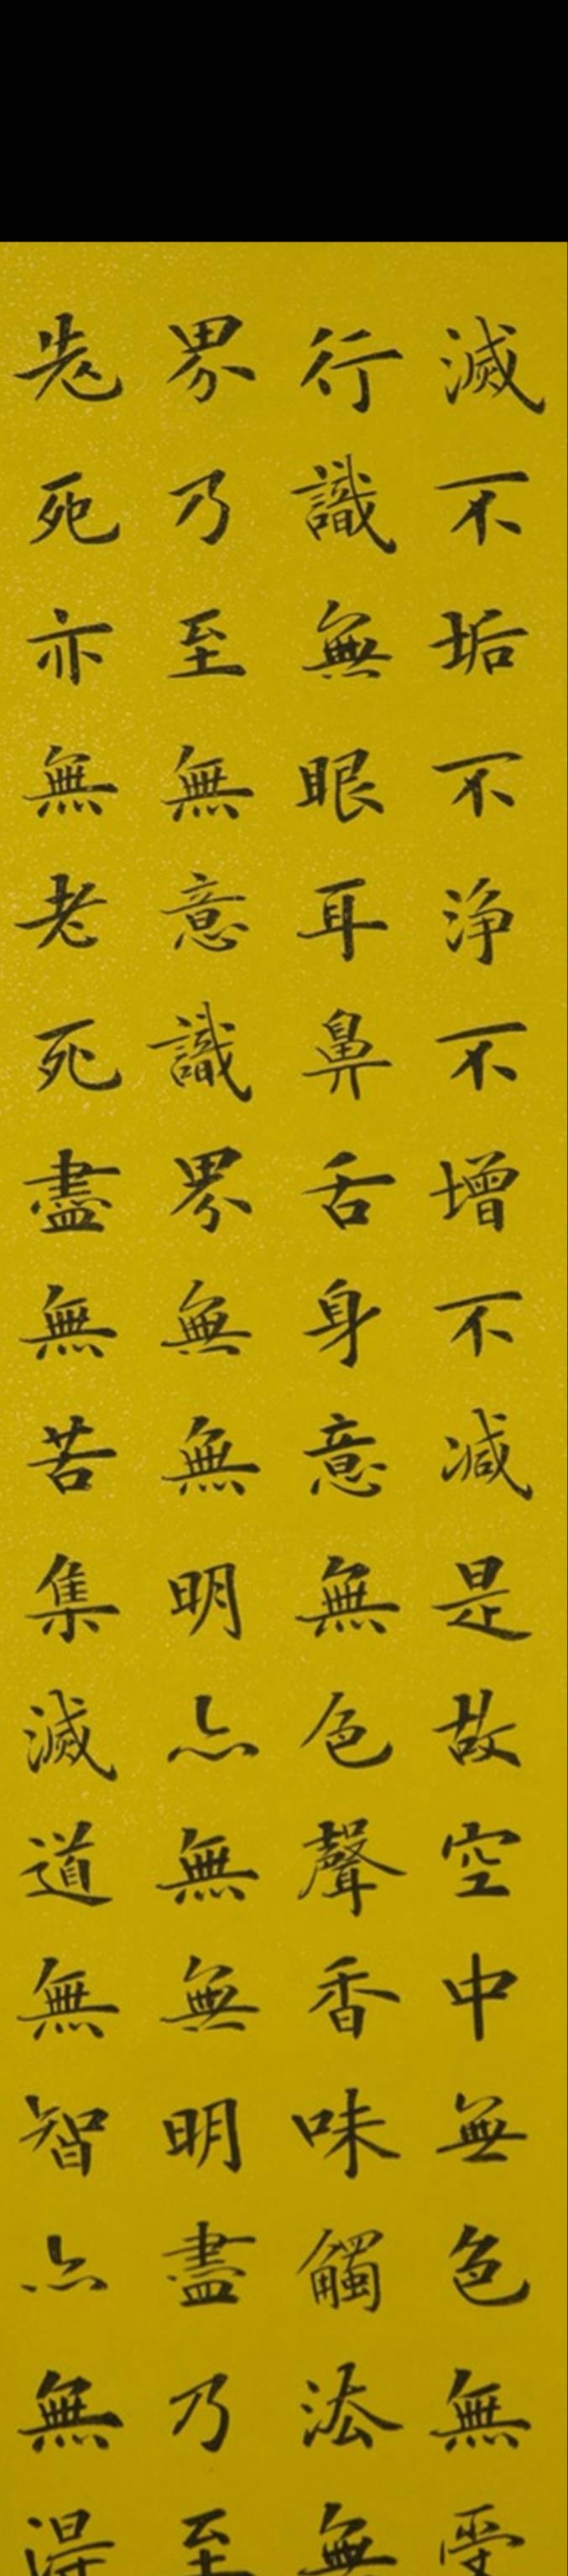 滅不垢不浄不增不減是故空中無色無受
行識無眼耳鼻舌身意無色聲香味觸法無
界乃至無意識界無無明亦無無明盡乃至
老死亦無老死盡無苦集滅道無智亦無得